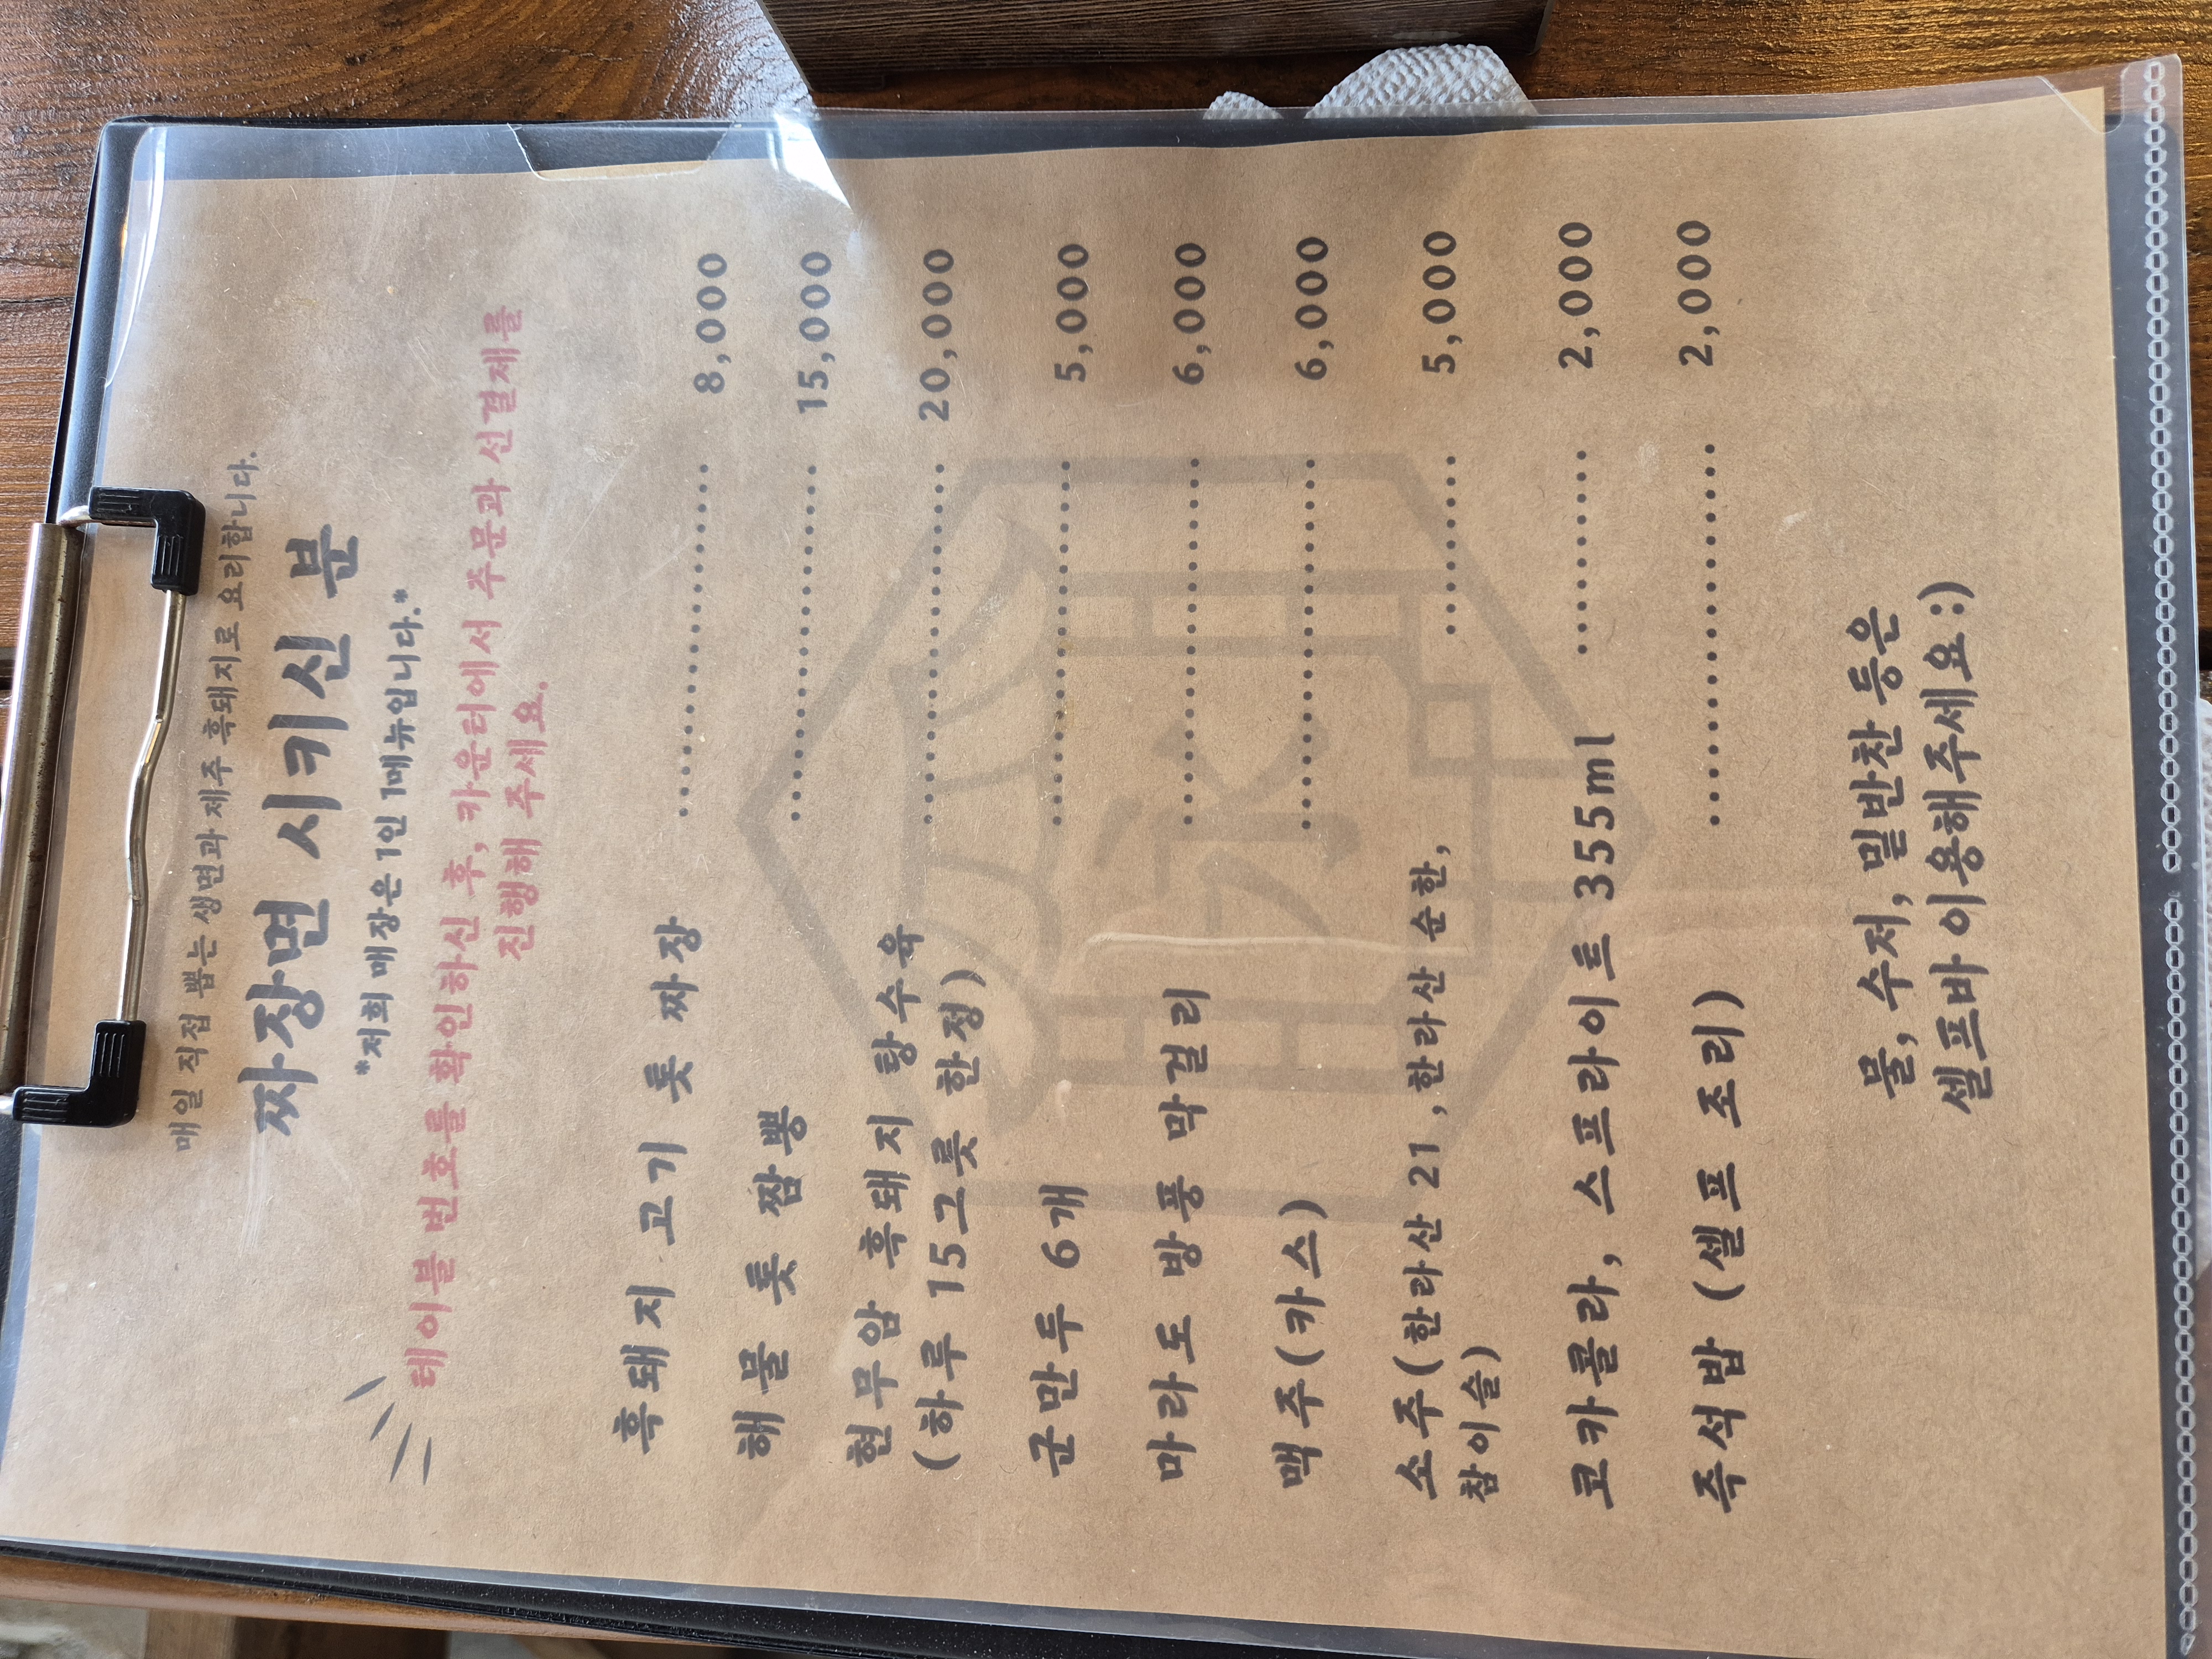 매일 직접 뽑는 생면과 제주 흑돼지로 요리합니다.
짜장면 시키신 분
*저희 매장은 1인 1메뉴입니다.*
테이블 번호를 확인하신 후, 카운터에서 주문과 선결제를
진행해 주세요.
흑돼지 고기 톳 짜장 .............................. 8,000
해물 톳 짬뽕 .............................. 15,000
현무암 흑돼지 탕수육 .............................. 20,000
(하루 15그릇 한정)
군만두 6개 .............................. 5,000
마라도 방풍 막걸리 .............................. 6,000
맥주(카스) .............................. 6,000
소주(한라산 21 ,한라산 순한, ............... 5,000
참이슬)
코카콜라, 스프라이트 355ml ................. 2,000
즉석밥 (셀프 조리) .............................. 2,000
물, 수저, 밑반찬 등은
셀프바 이용해주세요 :)